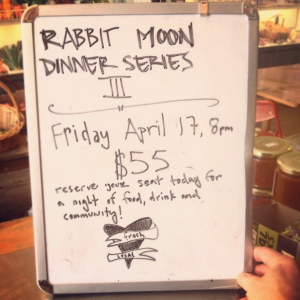 RABBIT MOON
DINNER SERIES
III
Friday April 17, 8pm
$55
reserve your seat today for
a night of food, drink and
community!
fresh
local